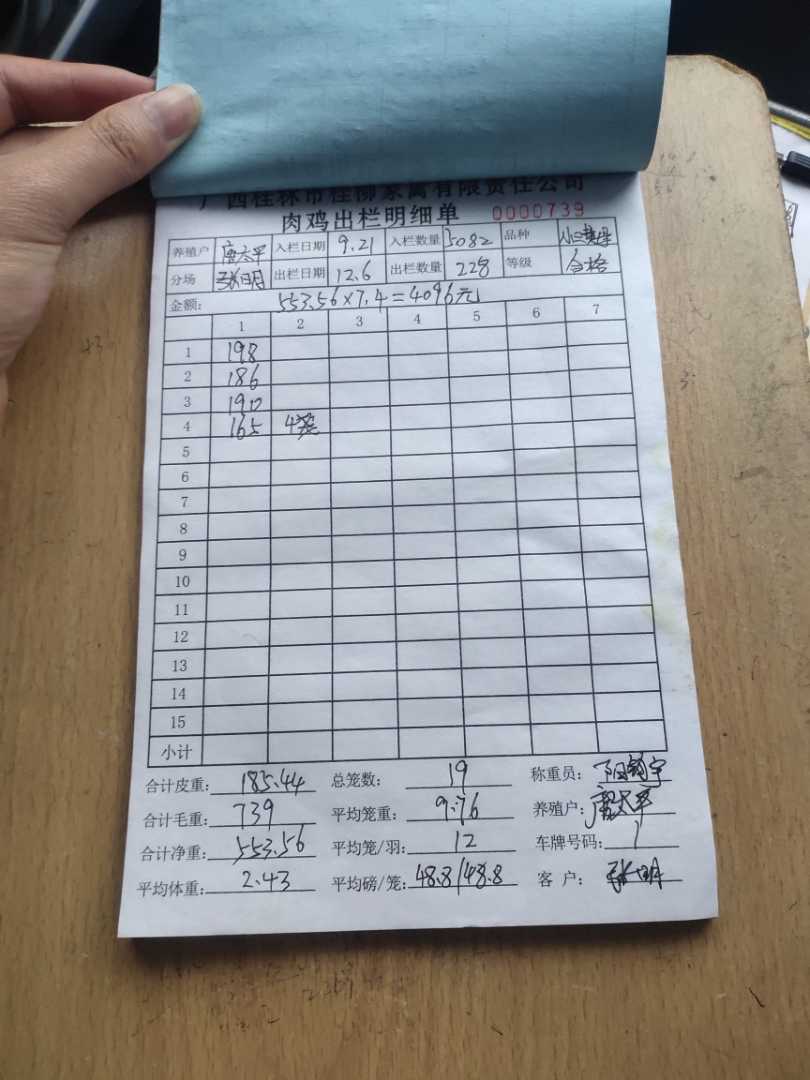 广西桂林市桂柳家禽有限责任公司
肉鸡出栏明细单 0000739
养殖户 唐太平 入栏日期 9.21 入栏数量 5082 品种
分场 张明 出栏日期 12.6 出栏数量 228 等级 合格
金额: 553.56×7.4=4096元
1 2 3 4 5 6 7
1 198
2 186
3 190
4 165 4笼
5
6
7
8
9
10
11
12
13
14
15
小计
合计皮重: 185.44 总笼数: 19 称重员:
合计毛重: 739 平均笼重: 9.76 养殖户: 唐太平
合计净重: 553.56 平均笼/羽: 12 车牌号码: /
平均体重: 2.43 平均磅/笼: 48.8/48.8 客 户: 张明